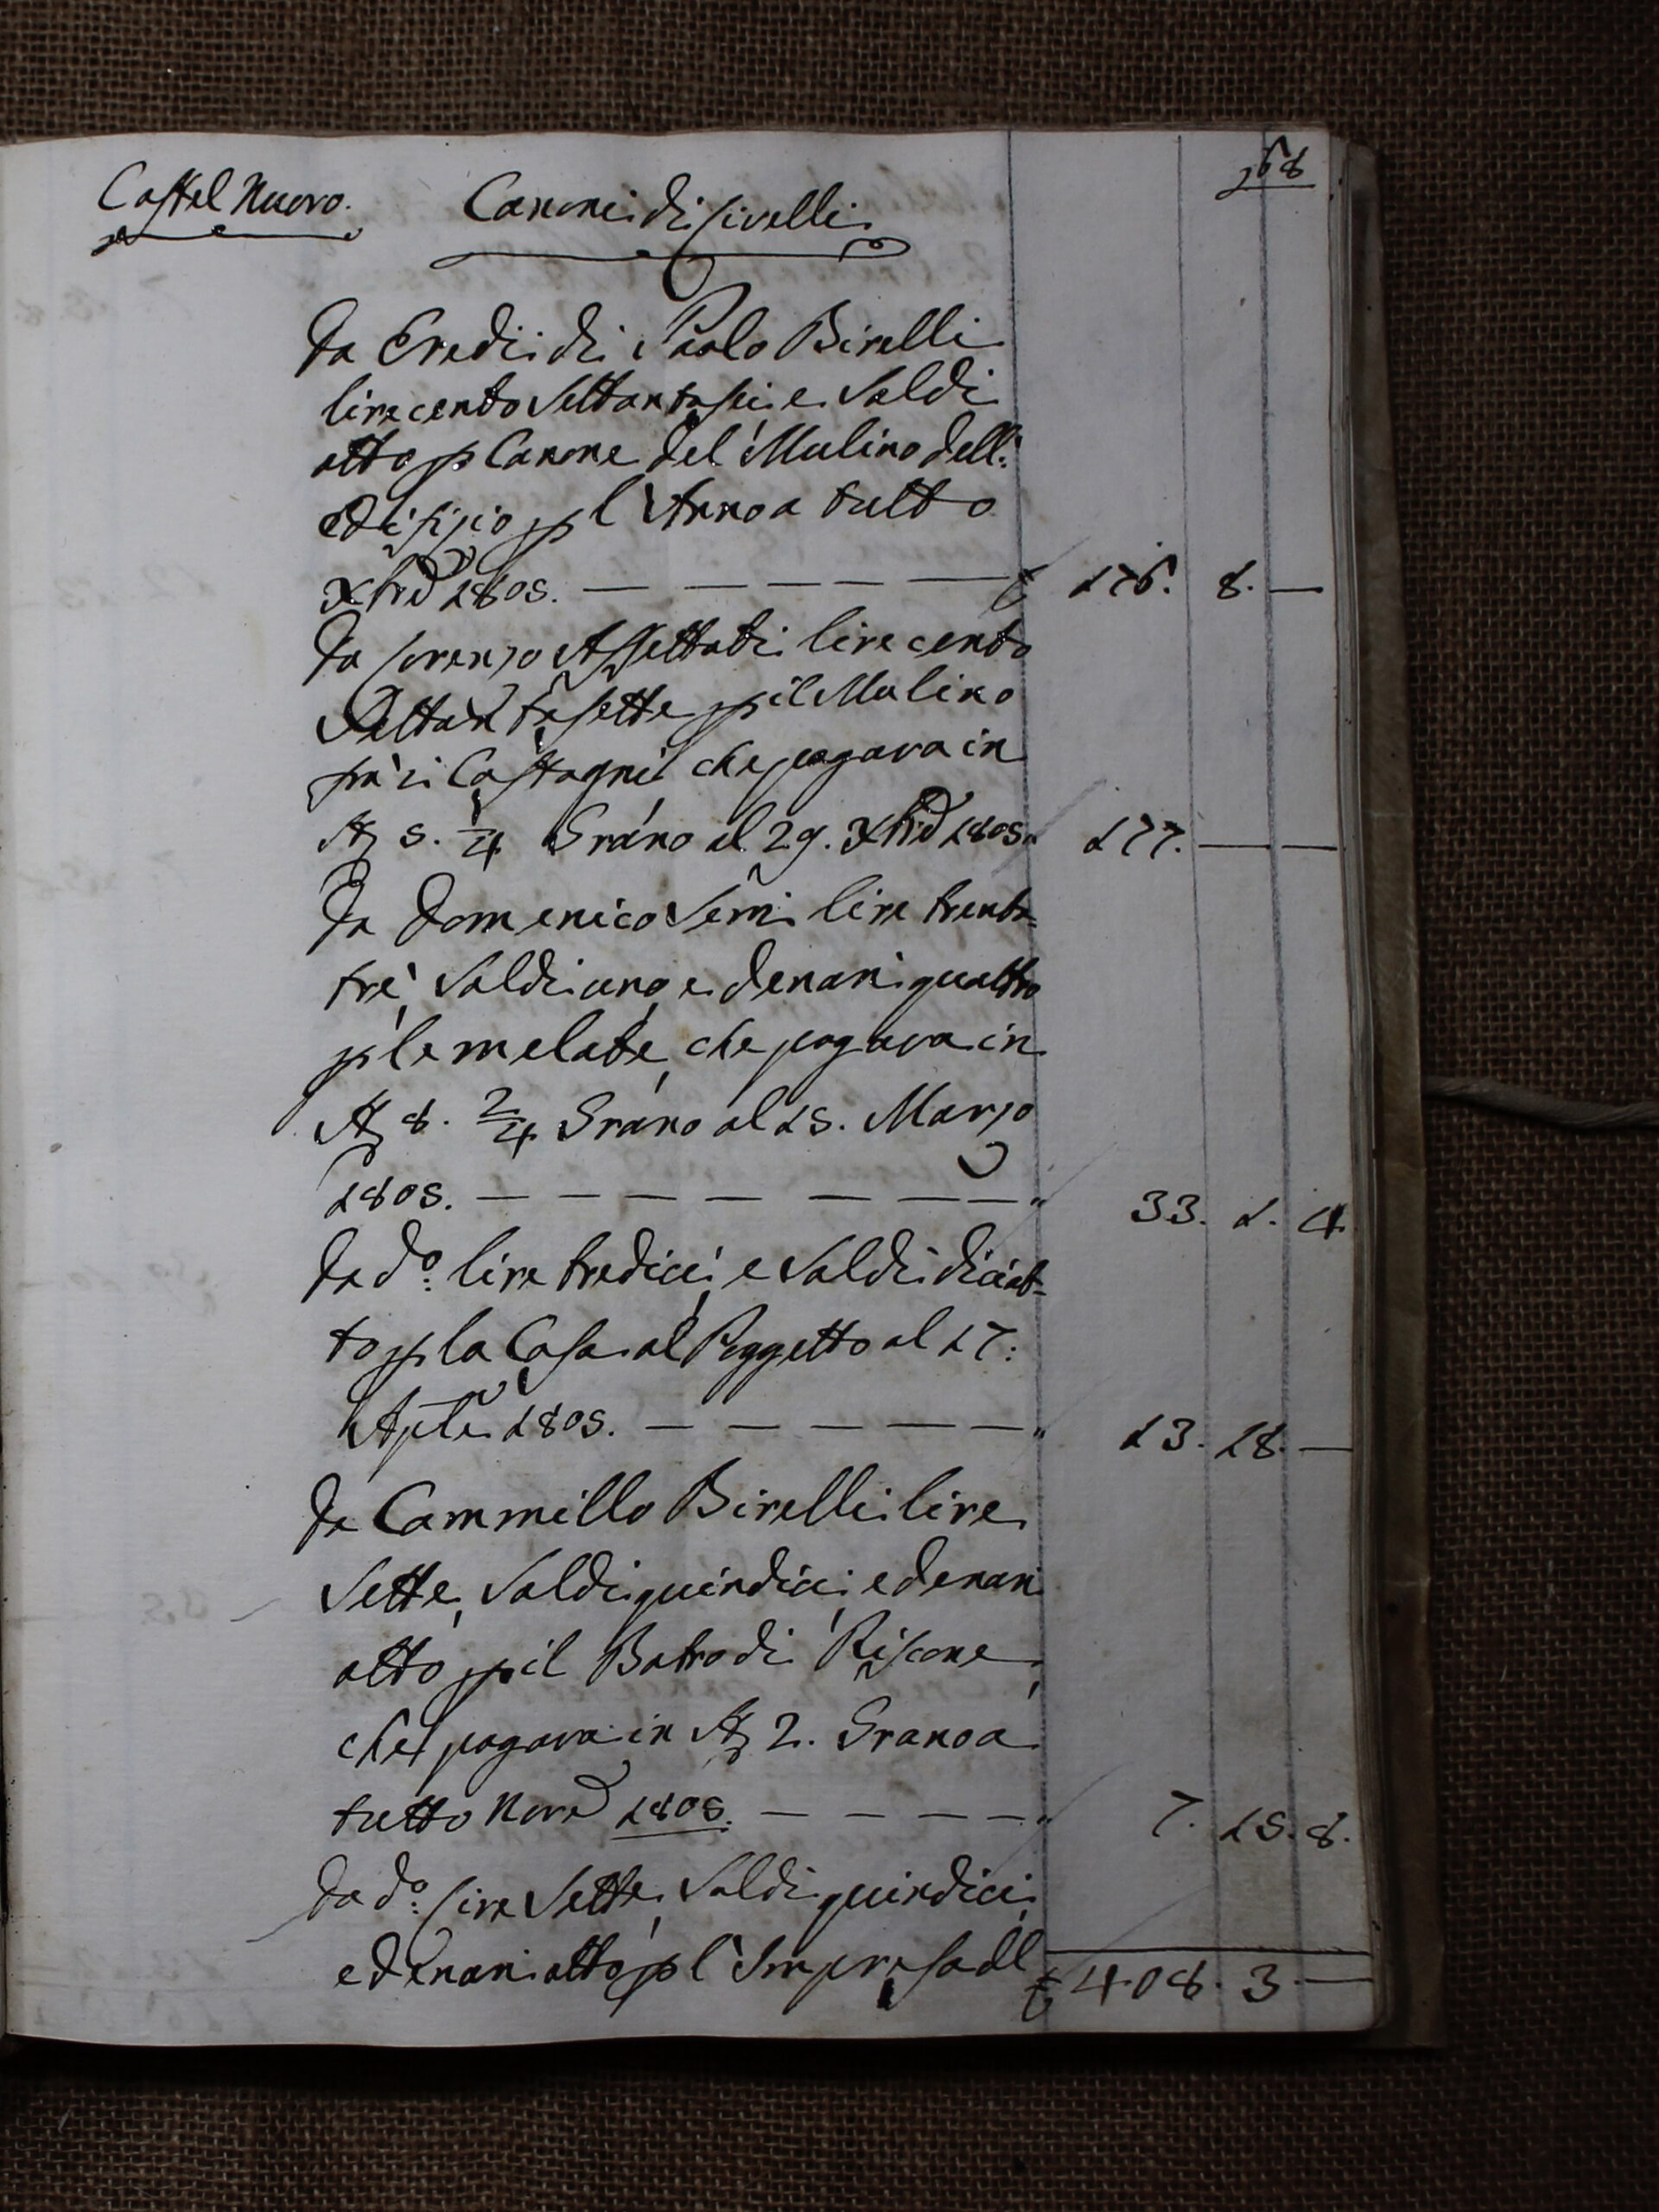 68
Castel Nuovo. Canoni di Livelli
Da Eredi di Paolo Birelli
lire cento Settantasei e Soldi
otto p Canone del Mulino dell'
Edifizio p l'Anno a tutto
Xbre 1805. — — — — — £ 176. 8. —
Da Lorenzo Assettati lire cento
Settantasette p il Mulino
frà i Castagni che pagava in
S. 1/4 Grano al 29. Xbre 1805. " 177. — —
Da Domenico Semi lire trenta-
trè, Soldi uno, e denari quattro
p le melate, che pagava in
8. 2/4 Grano al 15. Marzo
1805. — — — — — — — " 33. 1. 4.
Da do. lire tredici, e Soldi diciot-
to p la Casa al Poggetto al 17.
Aple 1805. — — — — — " 13. 18. —
Da Cammillo Birelli lire
Sette, Soldi quindici, e denari
otto p il Botro di Riscone,
che pagava in 2. Grano a
tutto Nove 1805. — — — — " 7. 15. 8.
Da do. lire Sette, Soldi quindici,
e denari otto p l'Impresa dl
£ 408. 3. —